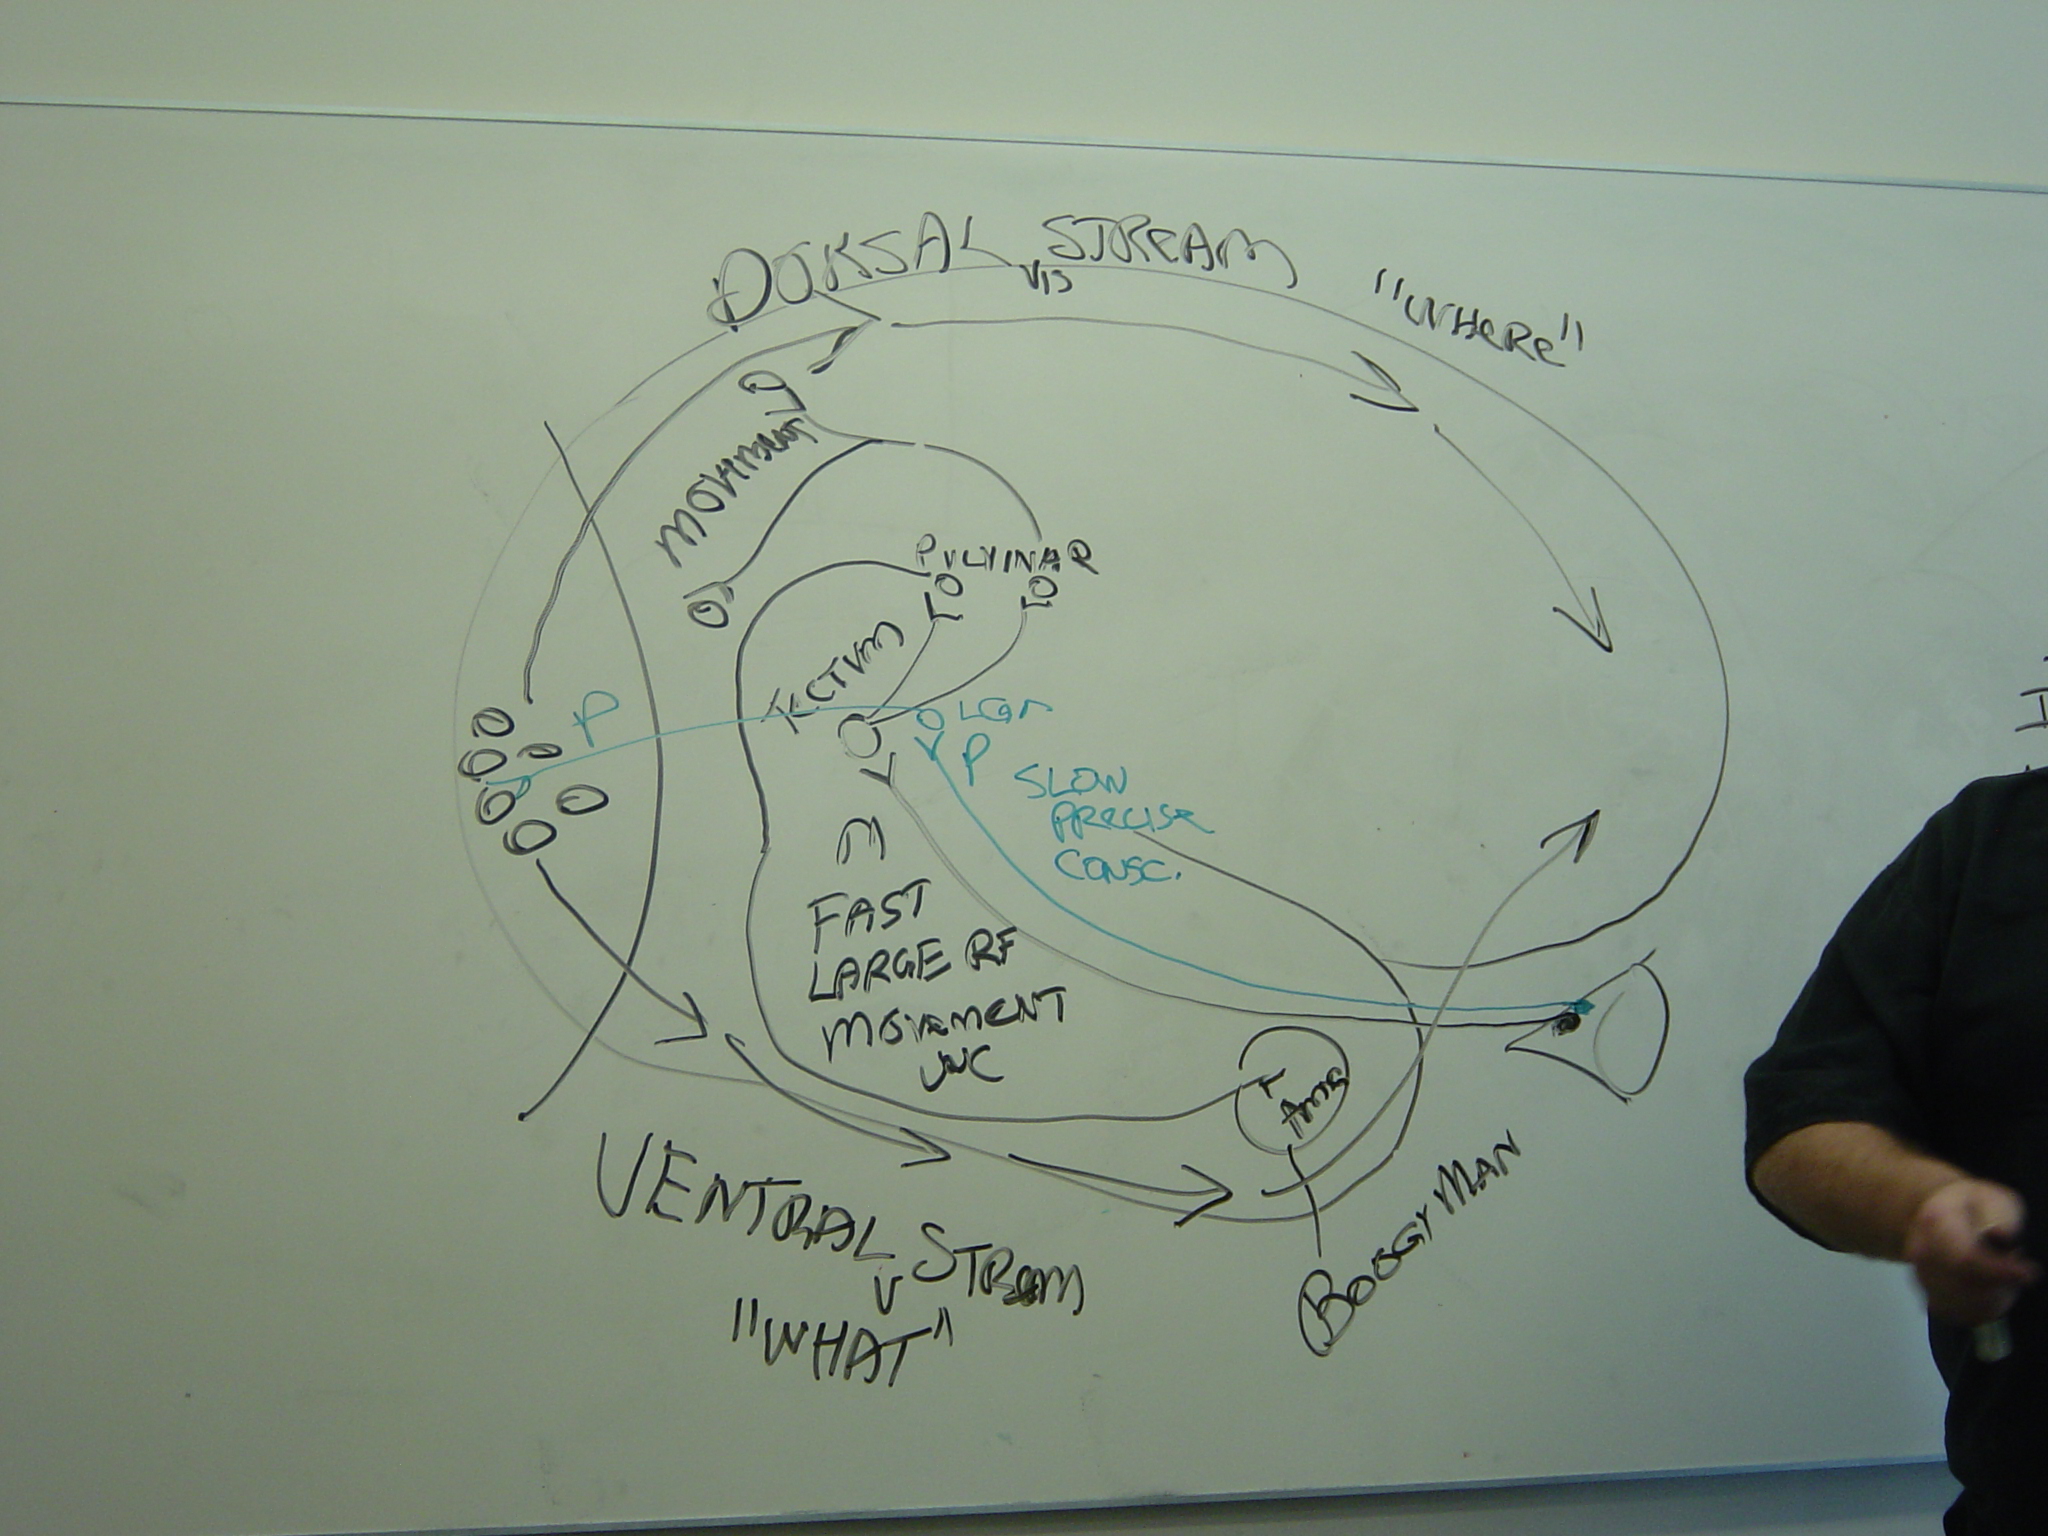 DORSAL STREAM
VIS
"WHERE"
MOVEMENT
PULVINAR
TECTUM
P
LGN
P
SLOW
PRECISE
CONSC.
M
FAST
LARGE RF
MOVEMENT
UNC
AMYG
BOOGYMAN
VENTRAL STREAM
V
"WHAT"